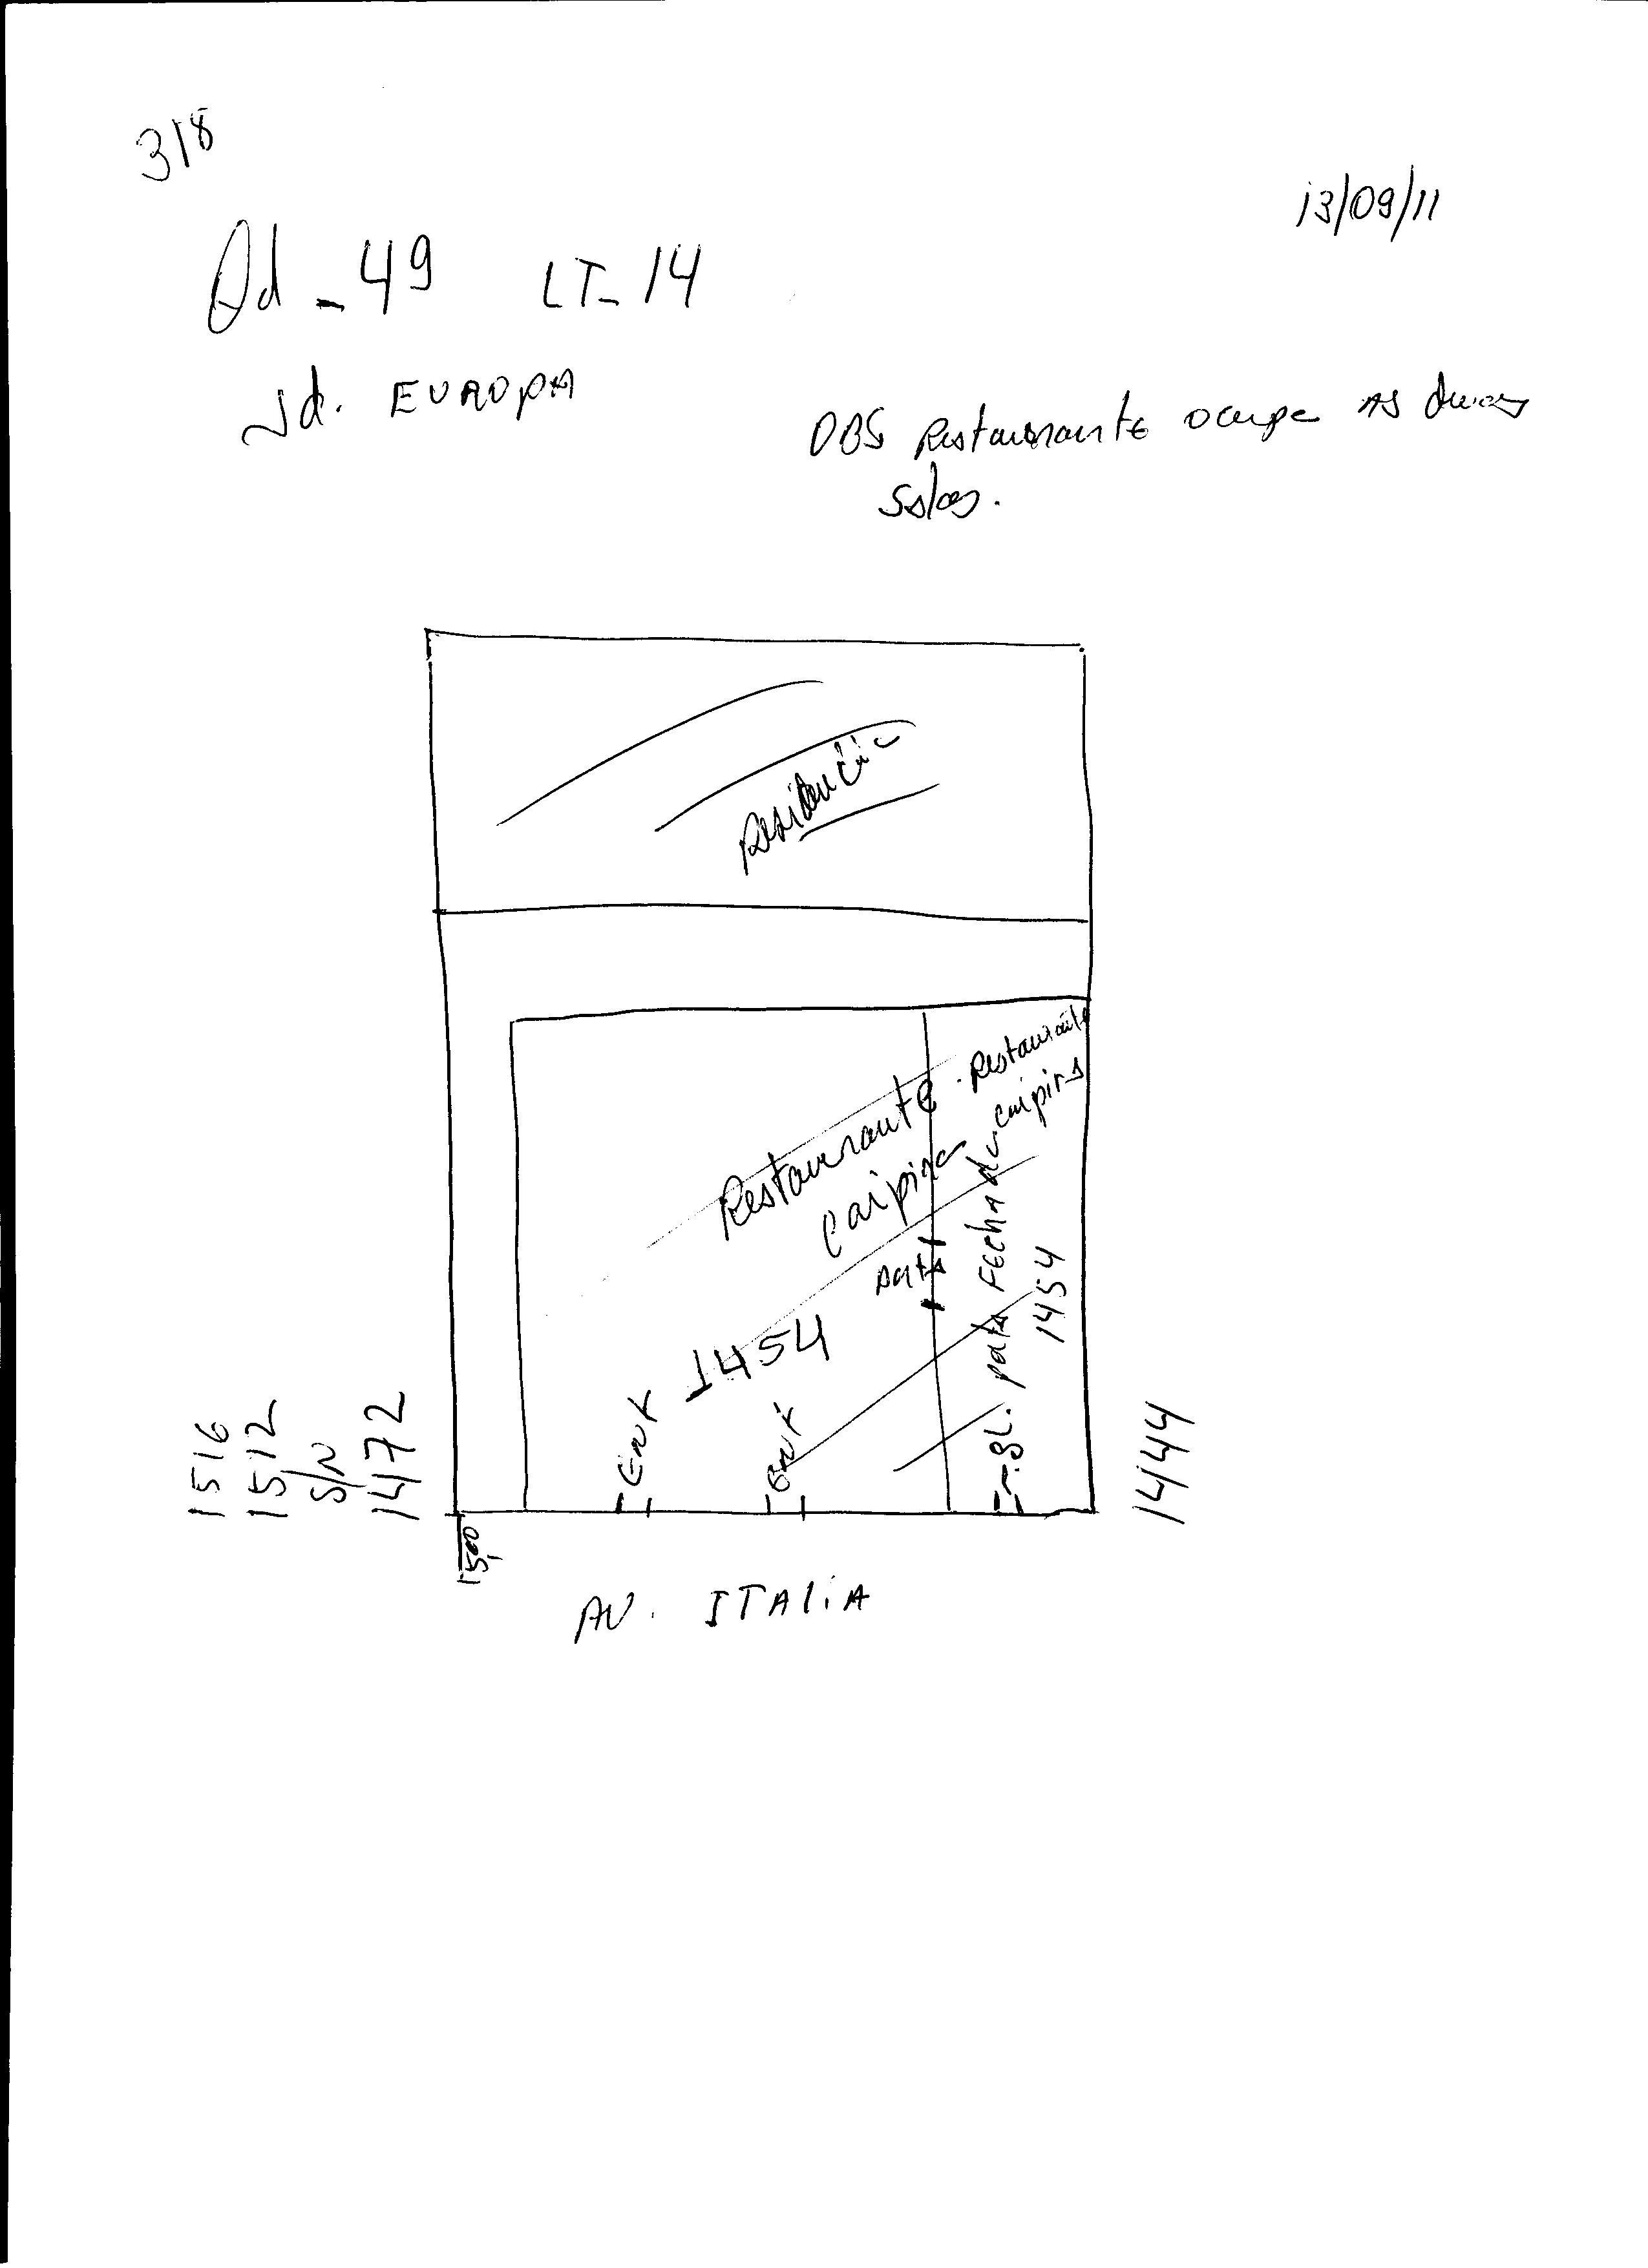 318
13/09/11
Qd - 49 LT - 14
Jd. EUROPA
OBS Restaurante ocupa as duas
Salas.
Residencia
Restaurante
caipira
Restaurante
caipira
1454
Ent
Ent
porta Fechada
1454
1516
1512
S/N
1472
1444
15,00
AV. ITALIA